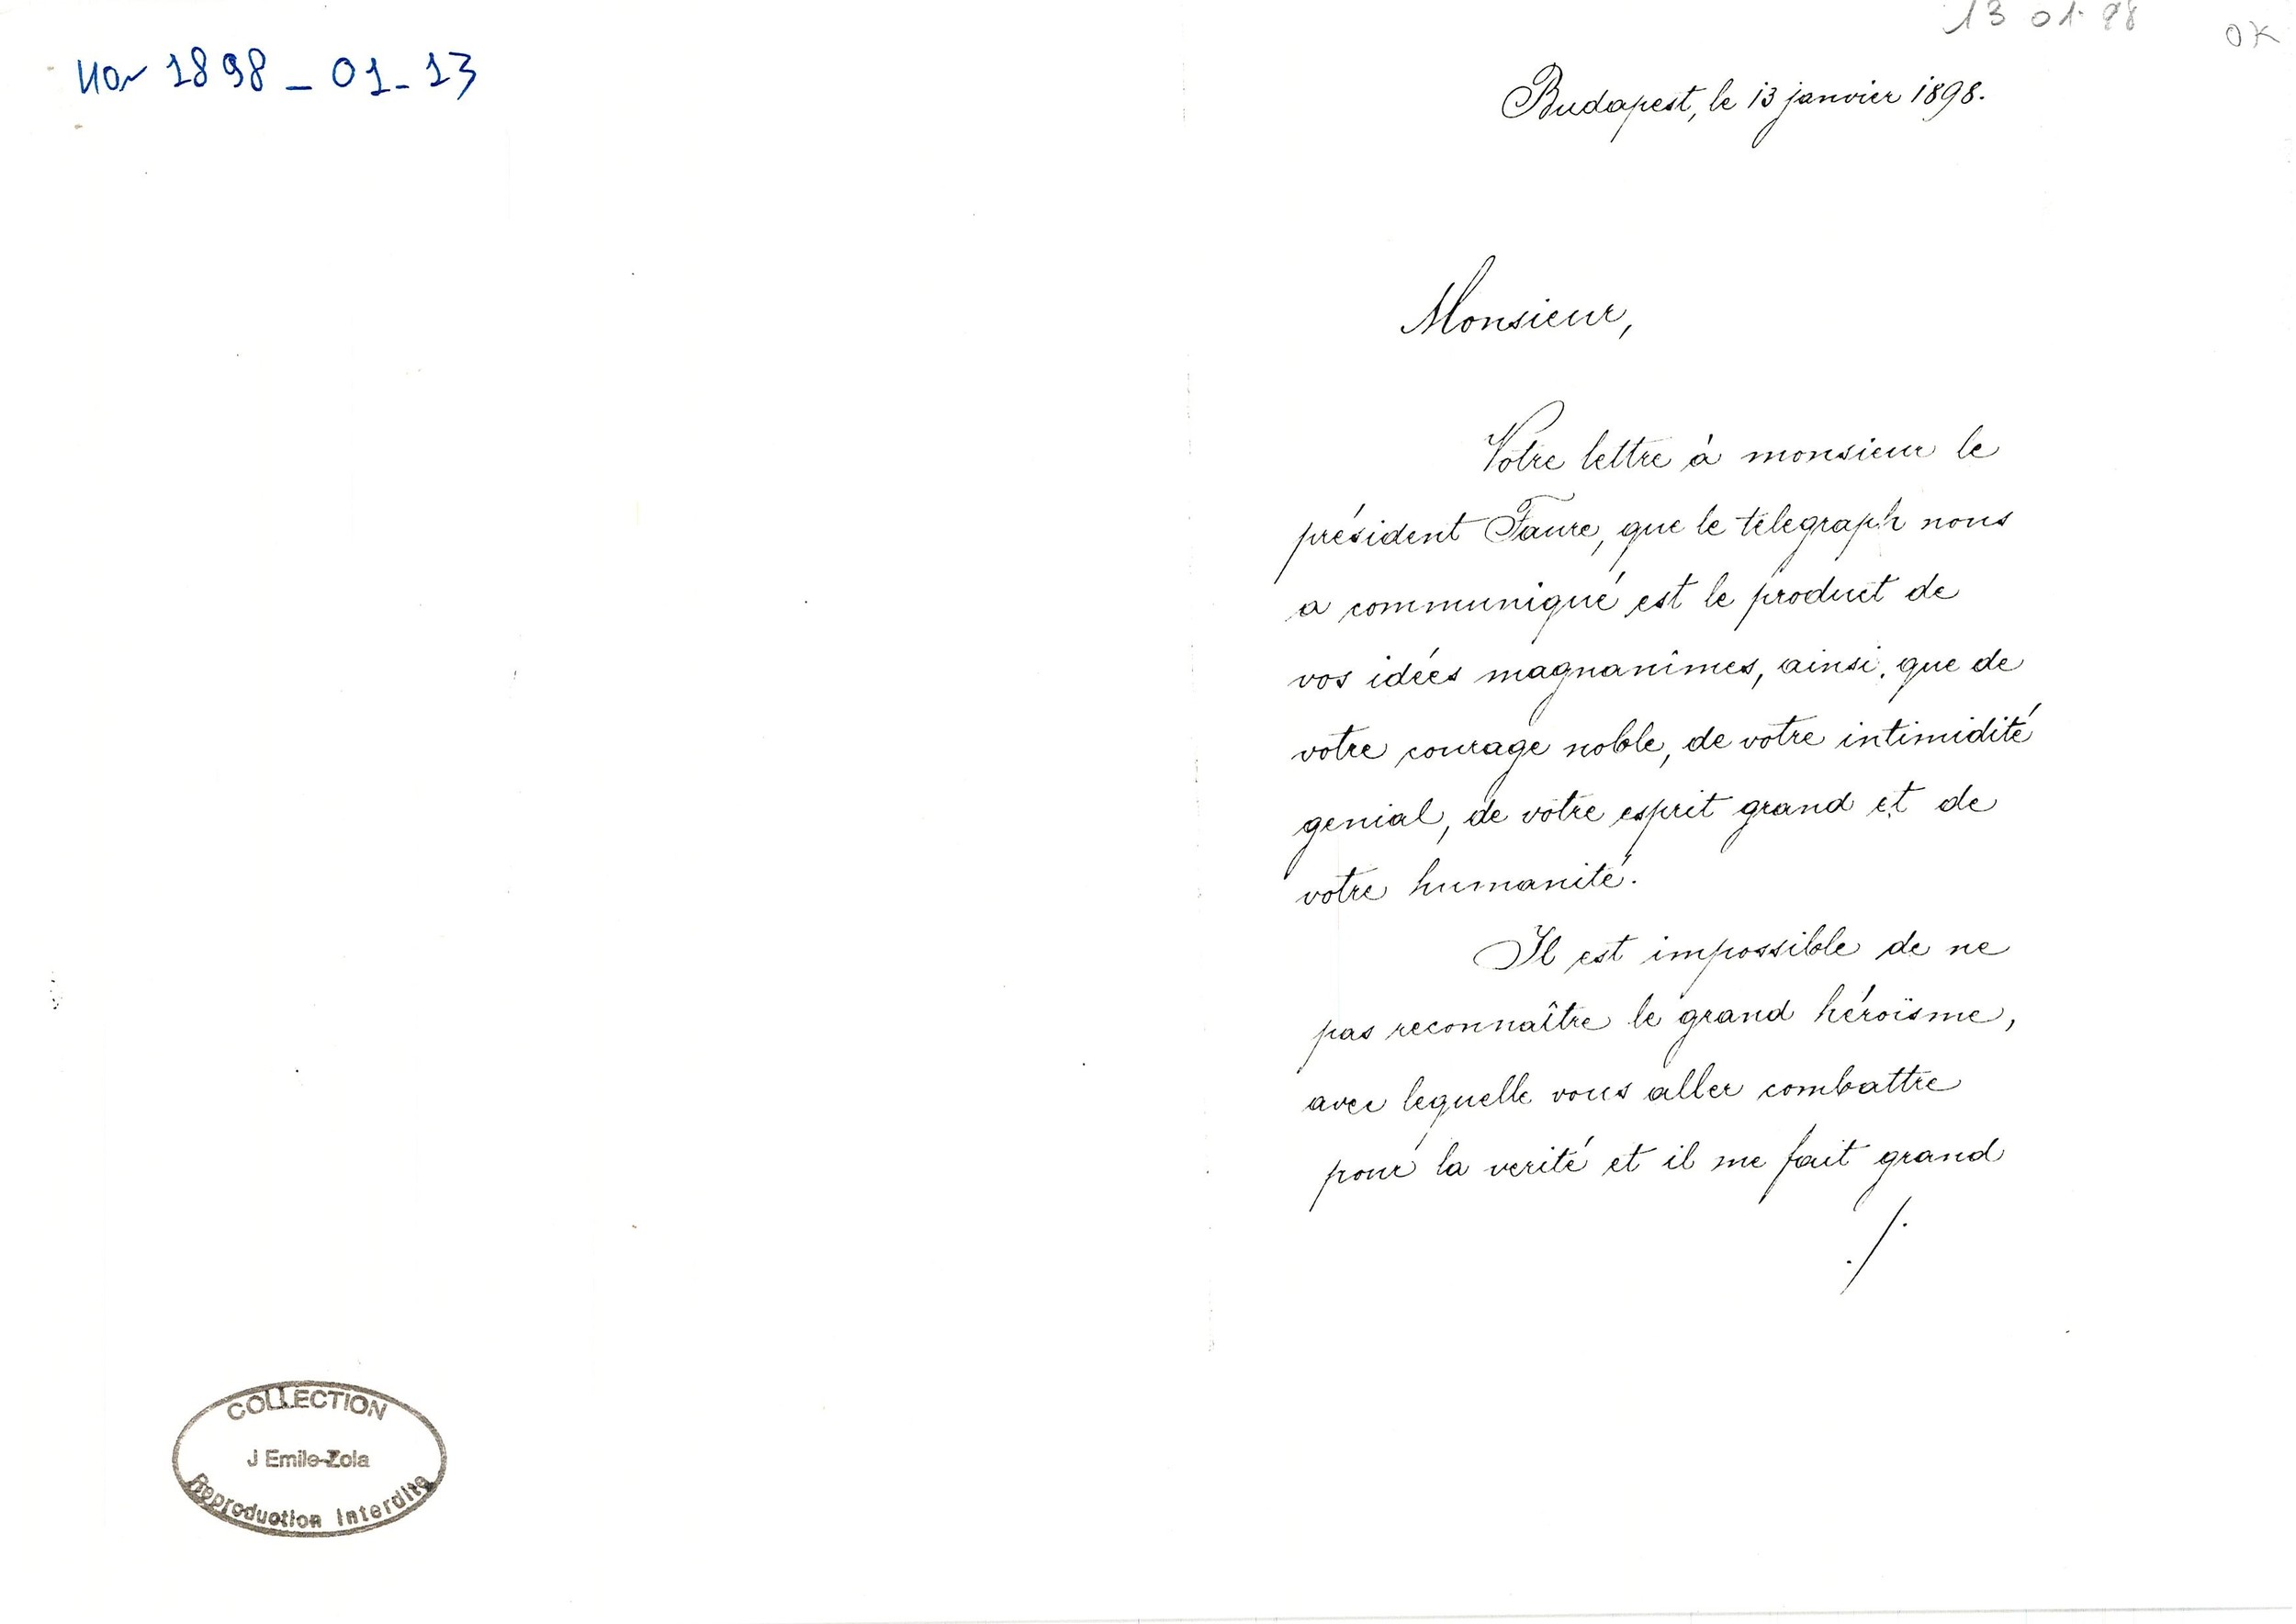 HON 1898 _ 01 - 13
13 01. 98
OK
Budapest, le 13 janvier 1898.
Monsieur,
Votre lettre à monsieur le
président Faure, que le télegraph nous
a communiqué est le produit de
vos idées magnanimes, ainsi, que de
votre courage noble, de votre intimidité
genial, de votre esprit grand et de
votre humanité.
Il est impossible de ne
pas reconnaître le grand héroïsme,
avec lequelle vous aller combattre
pour la verité et il me fait grand
./.
COLLECTION
J Emile-Zola
Reproduction Interdite